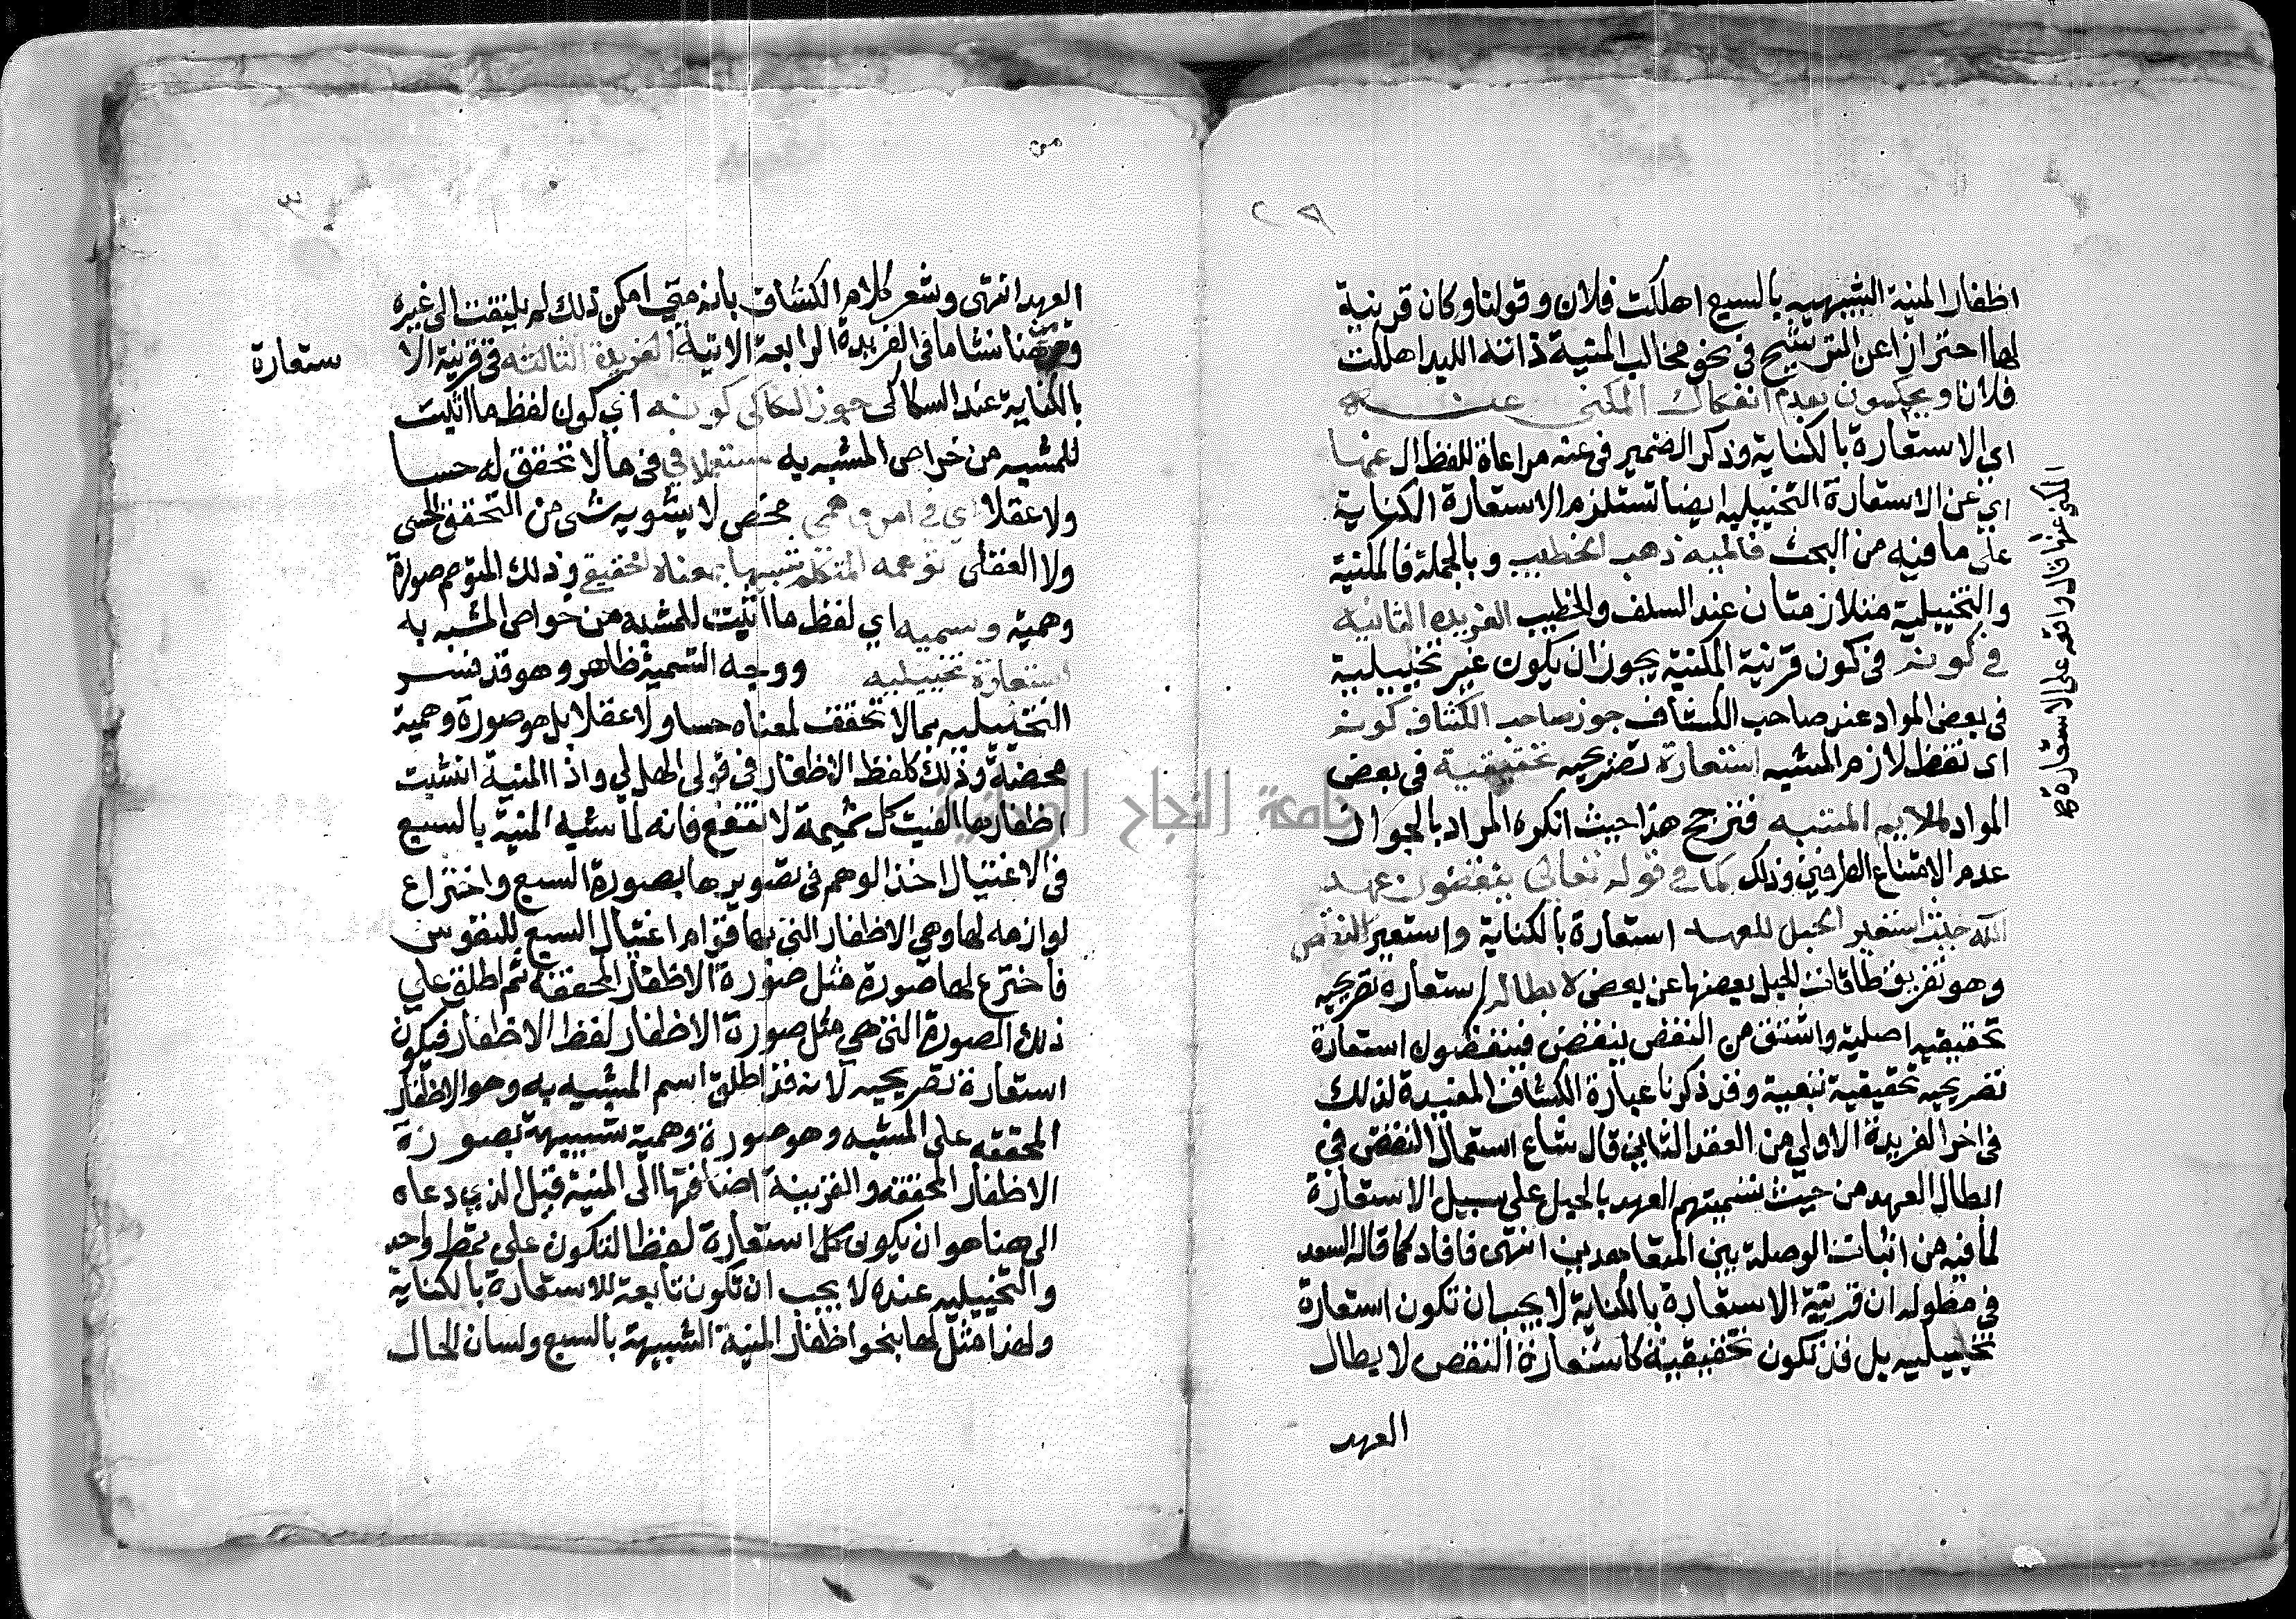 اظفار المنية الشبيهه بالسبع اهلكت فلان وقولنا وكان قرينة
لها احترازا عن الترشيح في نحو مخالب المنية ذاته الليد اهلكت
فلان ويحكمون بعدم انفكاك المكني عنه
اي الاستعارة بالكناية وذكر الضمير في عنه مراعاة للفظ ال عنها
اي عن الاستعارة التخييلية ايضا تستلزم الاستعارة الكناية
على ما فيه من البحث فاليه ذهب الخطيب وبالجملة فالمكنية
والتخييلية متلازمتان عند السلف والخطيب الفريدة الثانية
في كونه في كون قرينة المكنية يجوز ان يكون غير تخييلية
في بعض المواد عند صاحب الكشاف جوز صاحب الكشاف كونه
اى لفظ لازم المشبه استعارة تصريحيه تحقيقية في بعض
المواد لملايم المشبه فترجح هذا حيث انكره المراد بالجواز
عدم الامتناع الطرفين وذلك كما في قوله تعالى ينقضون عهد
الله حيث استعير الحبل للعهد استعارة بالكناية واستعير النقض
وهو تفريق طاقات الحبل بعضها عن بعض لابطاله استعاره تصريحيه
تحقيقيه اصلية واشتق من النقض ينقض فينقضون استعارة
تصريحيه تحقيقية تبعية وقد ذكرنا عبارة الكشاف المفيدة لذلك
في اخر الفريدة الاولى من العقد الثاني قال شاع استعمال النقض في
ابطال العهد من حيث تسميتهم العهد بالحبل على سبيل الاستعارة
لما فيه من اثبات الوصلة بين المتعاهدين انتهى فافاد كما قاله السعد
في مطوله ان قرينة الاستعارة بالكناية لا يجب ان تكون استعارة
تخييليه بل قد تكون تحقيقية كاستعارة النقض لابطال
العهد
المكني عنها قال واقعه على الاستعارة
من
العهد انتهى وشعر كلام الكشاف بانه متى امكن ذلك لم يلتفت الى غيره
ما في الفريدة الرابعة الاتية الفريدة الثالثه في قرينة الا
ستعارة
بالكناية عند السكاكى جوز السكاكى كونه اي كون لفظ ما اثبت
للمشبه من خواص المشبه به مستعملا في في ما لا تحقق له حسا
ولا عقلا اي في امر وهمي محض لا يشوبه شى من التحقق الحسى
ولا العقلى توهمه المتكلم شبيها بمعناه الحقيقي وذلك المتوهم صورة
وهمية وسميه اي لفظ ما اثبت للمشبه من خواص المشبه به
استعارة تخييلية ووجه التسمية ظاهر وهو قد فسر
التخييليه بما لا تحقق لمعناه حسا ولا عقلا بل هو صورة وهمية
محضة وذلك كلفظ الاظفار في قولى الهذلي واذا المنية انشبت
اظفارها الفيت كل تميمة لا تنفع فانه لما شبه المنية بالسبع
في الاغتيال اخذ الوهم في تصويرها بصورة السبع واختراع
لوازمه لها وهي الاظفار التي بها قوام اغتيال السبع للنفوس
فاخترع لها صورة مثل صورة الاظفار المحققة ثم اطلق علي
ذلك الصورة التي هي مثل صورة الاظفار لفظ الاظفار فيكون
استعارة تصريحيه لانه قد اطلق اسم المشبه به وهو الاظفار
المحققه على المشبه وهو صورة وهمية شبيهة بصورة
الاظفار المحققه والقرينة اضافتها الى المنية قيل الذي دعاه
الى هنا هو ان يكون كل استعارة لفظا لتكون على نمط واحد
والتخييليه عنده لا يجب ان تكون تابعة للاستعارة بالكناية
ولهذا مثل لها بنحو اظفار المنية الشبيهة بالسبع ولسان الحال
جامعة النجاح الوطنية